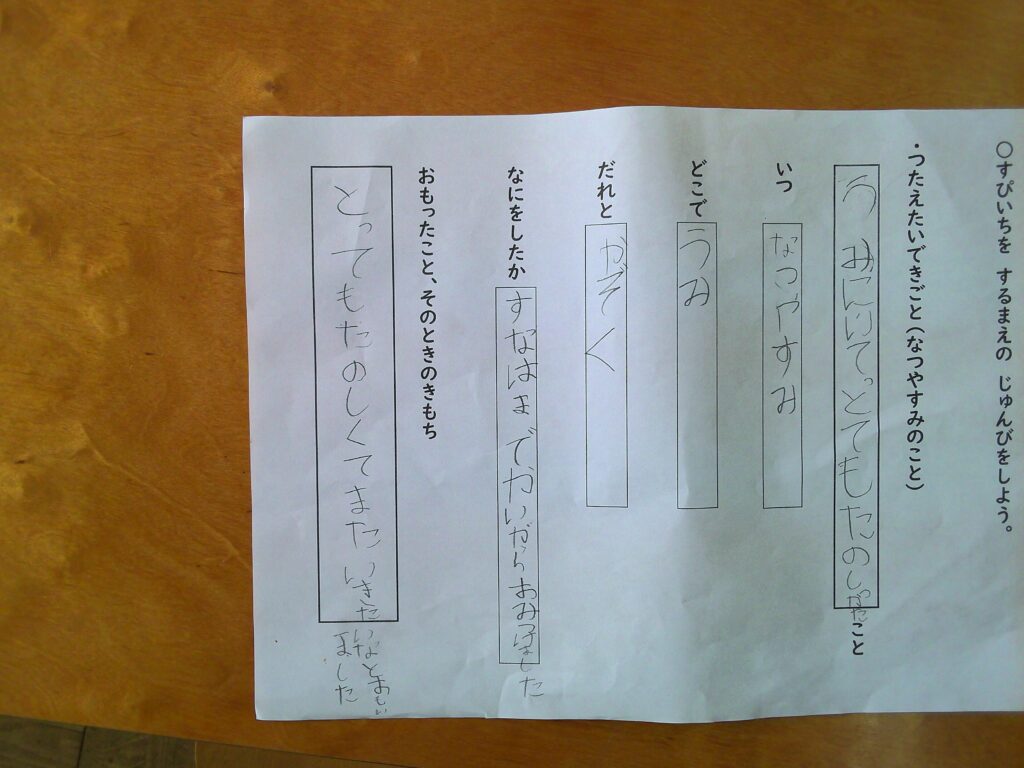 ○すぴいちを するまえの じゅんびをしよう。
・つたえたいできごと(なつやすみのこと)
うみにいて。とてもたのしかたこと
いつ なつやすみ
どこで うみ
だれと かぞく
なにをしたか すなはまでかいがらおみつけました
おもったこと、そのときのきもち
とってもたのしくてまたいきた
いなとおもい
ました